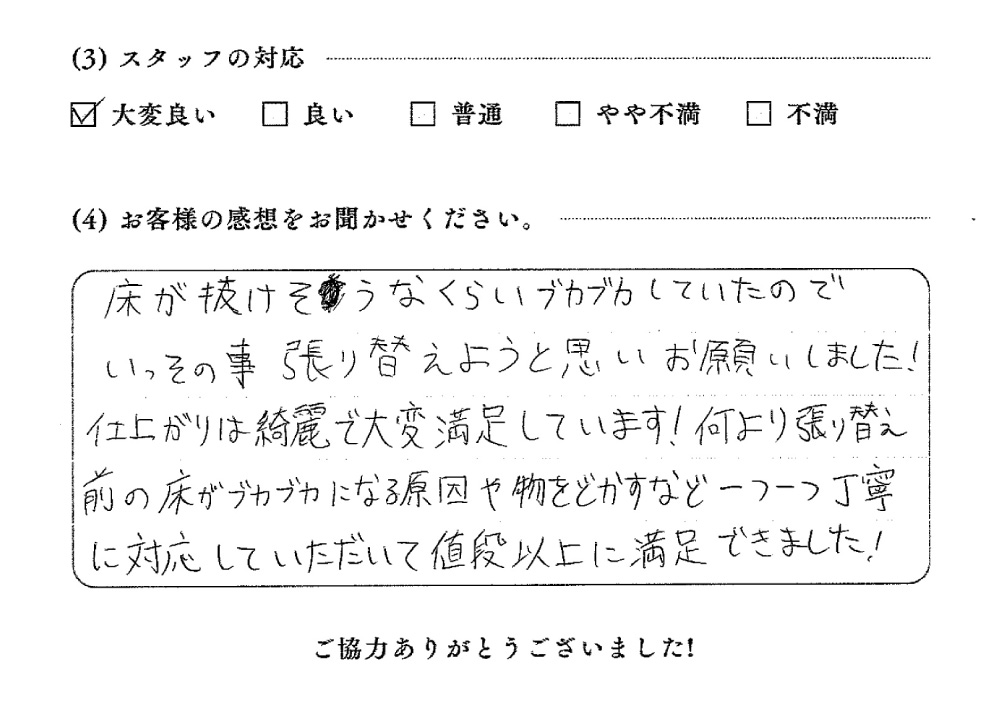 (3) スタッフの対応
☑ 大変良い □ 良い □ 普通 □ やや不満 □ 不満
(4) お客様の感想をお聞かせください。
床が抜けそうなくらいブカブカしていたので
いっその事 張り替えようと思い お願いしました!
仕上がりは綺麗で大変満足しています!何より張り替え
前の床がブカブカになる原因や物をどかすなど一つ一つ丁寧
に対応していただいて値段以上に満足できました!
ご協力ありがとうございました!